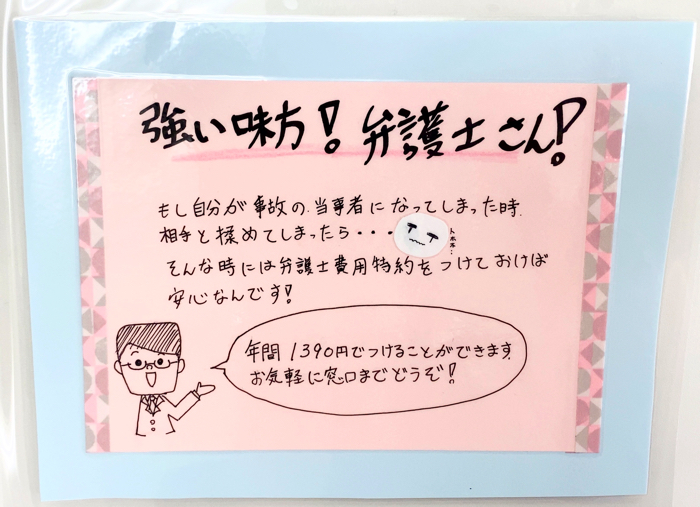 強い味方!弁護士さん!
もし自分が事故の当事者になってしまった時
相手と揉めてしまったら・・・
そんな時には弁護士費用特約をつけておけば
安心なんです!
年間1390円でつけることができます
お気軽に窓口までどうぞ!